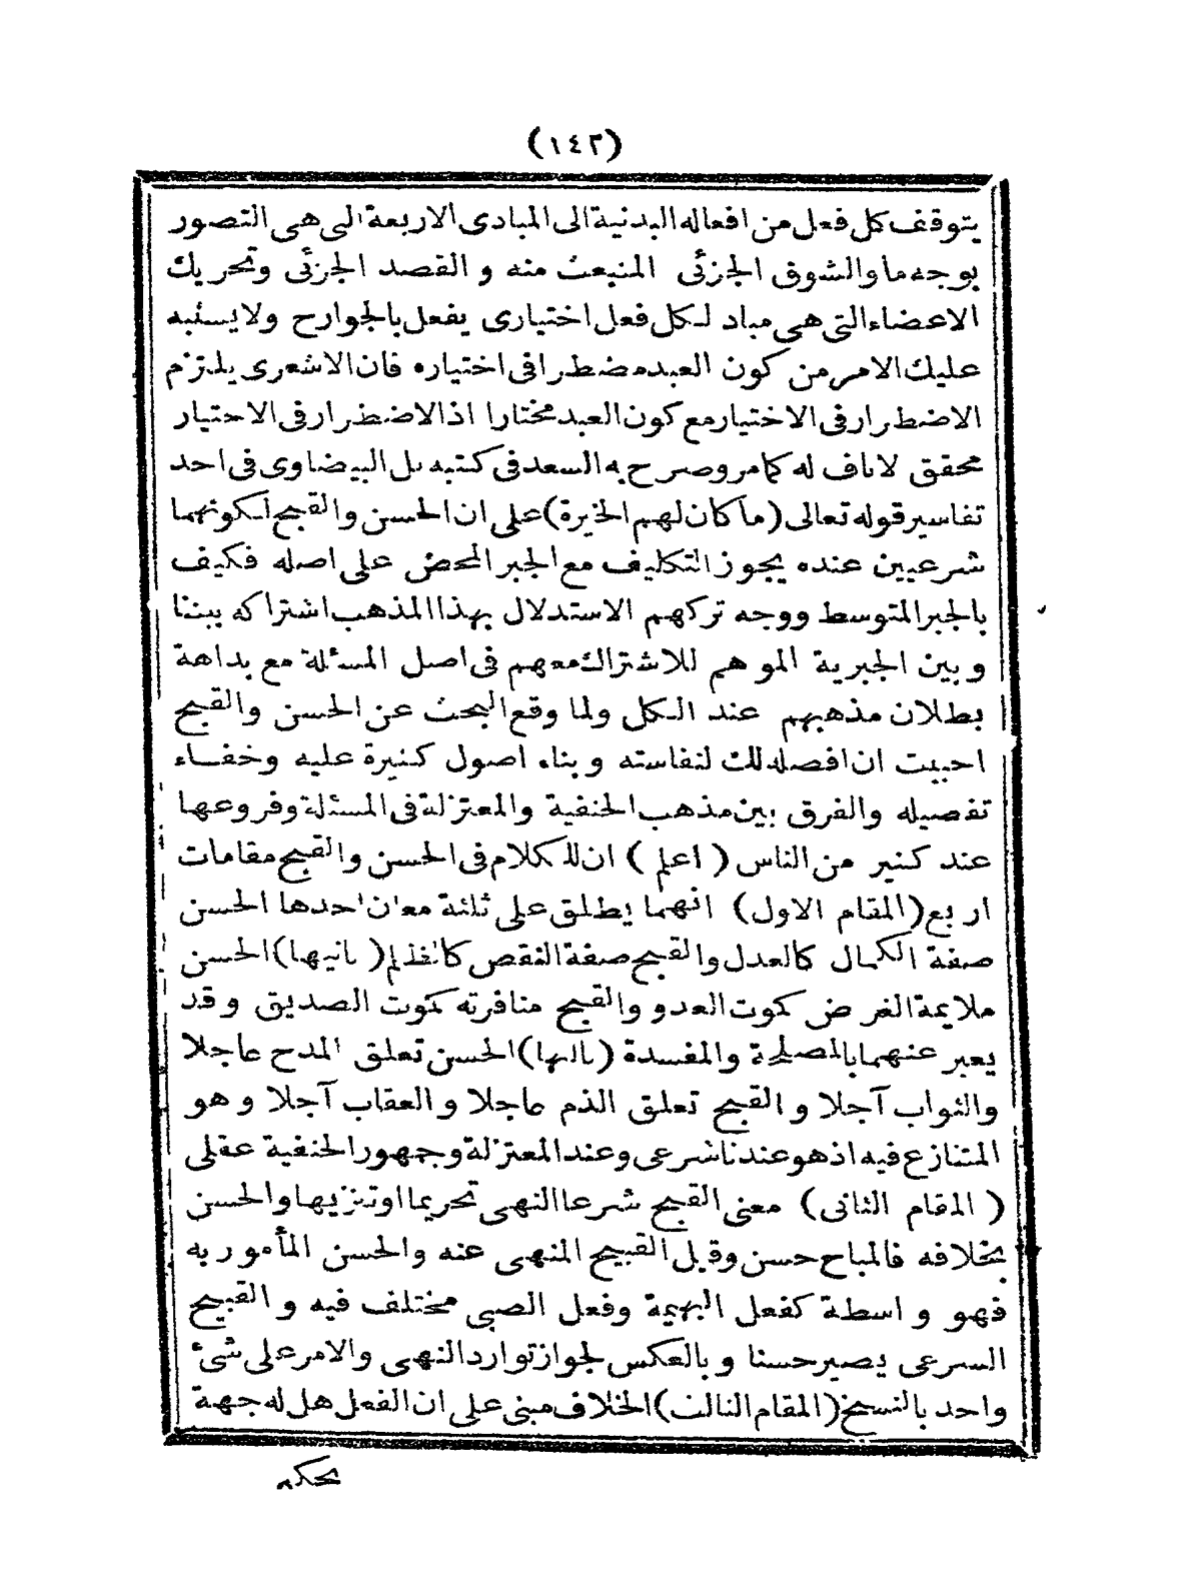 (١٤٣)
يتوقف كل فعل من افعاله البدنية الى المبادى الاربعة التى هى التصور
بوجه ما والشوق الجزئى المنبعث منه و القصد الجزئى وتحريك
الاعضاء التى هى مباد لكل فعل اختيارى يفعل بالجوارح ولا يستبه
عليك الامر من كون العبد مضطرا فى اختياره فان الاشعرى يلتزم
الاضطرار فى الاختيار مع كون العبد مختارا اذ الاضطرار فى الاختيار
محقق لاناف له كما مر وصرح به السعد فى كتبه بل البيضاوى فى احد
تفاسير قوله تعالى (ما كان لهم الخيرة) على ان الحسن والقبح لكونهما
شرعيين عنده يجوز التكليف مع الجبر المحض على اصله فكيف
بالجبر المتوسط ووجه تركهم الاستدلال بهذا المذهب اشتراكه بيننا
و بين الجبرية الموهم للاشتراك معهم فى اصل المسئلة مع بداهة
بطلان مذهبهم عند الكل ولما وقع البحث عن الحسن والقبح
احببت ان افصله لك لنفاسته و بناء اصول كثيرة عليه وخفاء
تفصيله والفرق بين مذهب الحنفية والمعتزلة فى المسئلة وفروعها
عند كثير من الناس ( اعلم ) ان للكلام فى الحسن والقبح مقامات
اربع (المقام الاول) انهما يطلق على ثلثة معان احدها الحسن
صفة الكمال كالعدل والقبح صفة النقص كالظلم (ثانيها) الحسن
ملايمة الغرض كموت العدو والقبح منافرته كموت الصديق وقد
يعبر عنهما بالمصلحة والمفسدة (ثالثها) الحسن تعلق المدح عاجلا
والثواب آجلا و القبح تعلق الذم عاجلا و العقاب آجلا و هو
المتنازع فيه اذ هو عندنا شرعى وعند المعتزلة وجمهور الحنفية عقلى
( المقام الثانى) معنى القبح شرعا النهى تحريما او تنزيها والحسن
بخلافه فالمباح حسن وقيل القبيح المنهى عنه والحسن المأمور به
فهو و اسطة كفعل البهيمة وفعل الصبى مختلف فيه و القبيح
السرعى يصير حسنا و بالعكس لجواز توارد النهى والامر على شئ
واحد بالنسخ (المقام الثالث) الخلاف مبنى على ان الفعل هل له جهة